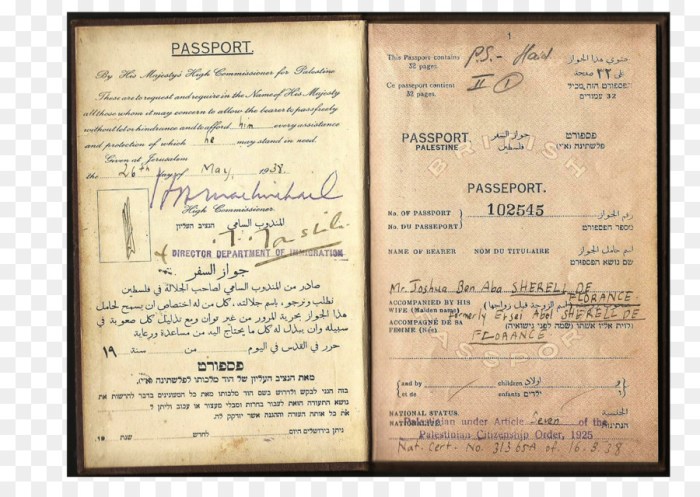 PASSPORT.
By His Majesty's High Commissioner for Palestine
These are to request and require in the Name of His Majesty
all those whom it may concern to allow the bearer to pass freely
without let or hindrance and to afford him every assistance
and protection of which he may stand in need.
Given at Jerusalem
the 26th day of May, 1938.
High Commissioner
المندوب السامي הנציב העליון
DIRECTOR DEPARTMENT OF IMMIGRATION
جواز السفر
صادر من المندوب السامي لصاحب الجلالة في فلسطين
نطلب ونرجو، باسم جلالته، كل من له اختصاص ان يسمح لحامل
هذا الجواز بحرية المرور من غير توان ومع تذليل كل صعوبة في
سبيله وان يبذل له كل ما يحتاج اليه من مساعدة ورعاية
حرر في القدس في اليوم من سنة ١٩
פספורט
מאת הנציב העליון של הוד מלכותו לפלשתינה (א״י).
הנני לבקש ולדרוש בשם הוד מלכותו את כל המעונינים
ניתן בירושלים היום לחדש שנת 19
1
This Passport contains
32 pages.
Ce passeport contient
32 pages.
P.S. -
II 1
يحتوي هذا الجواز
على ٣٢ صفحة
הפספורט הזה מכיל
32 עמודים
BRITISH
PASSPORT
PALESTINE
جواز السفر
فلسطين
פספורט
פלשתינה (א״י)
PASSEPORT.
No. OF PASSPORT
No. DU PASSEPORT
102545
رقم الجواز
מספר הפספורט
NAME OF BEARER NOM DU TITULAIRE
اسم حامل الجواز
שם נושא הפספורט
Mr. Joshua Ben Aba SHERELL DE
FLORANCE
ACCOMPANIED BY HIS
WIFE (Maiden name)
ACCOMPAGNÉ DE SA
FEMME (Née)
formerly Abel SHERELL DE
FLORANCE
PASSPORT
and by children اولاد
et de enfants ילדים
NATIONAL STATUS
الجنسية
הנתינות
Palestinian under Article of the
Palestinian Citizenship Order, 1925
Nat. Cert. No. of 16.3.38